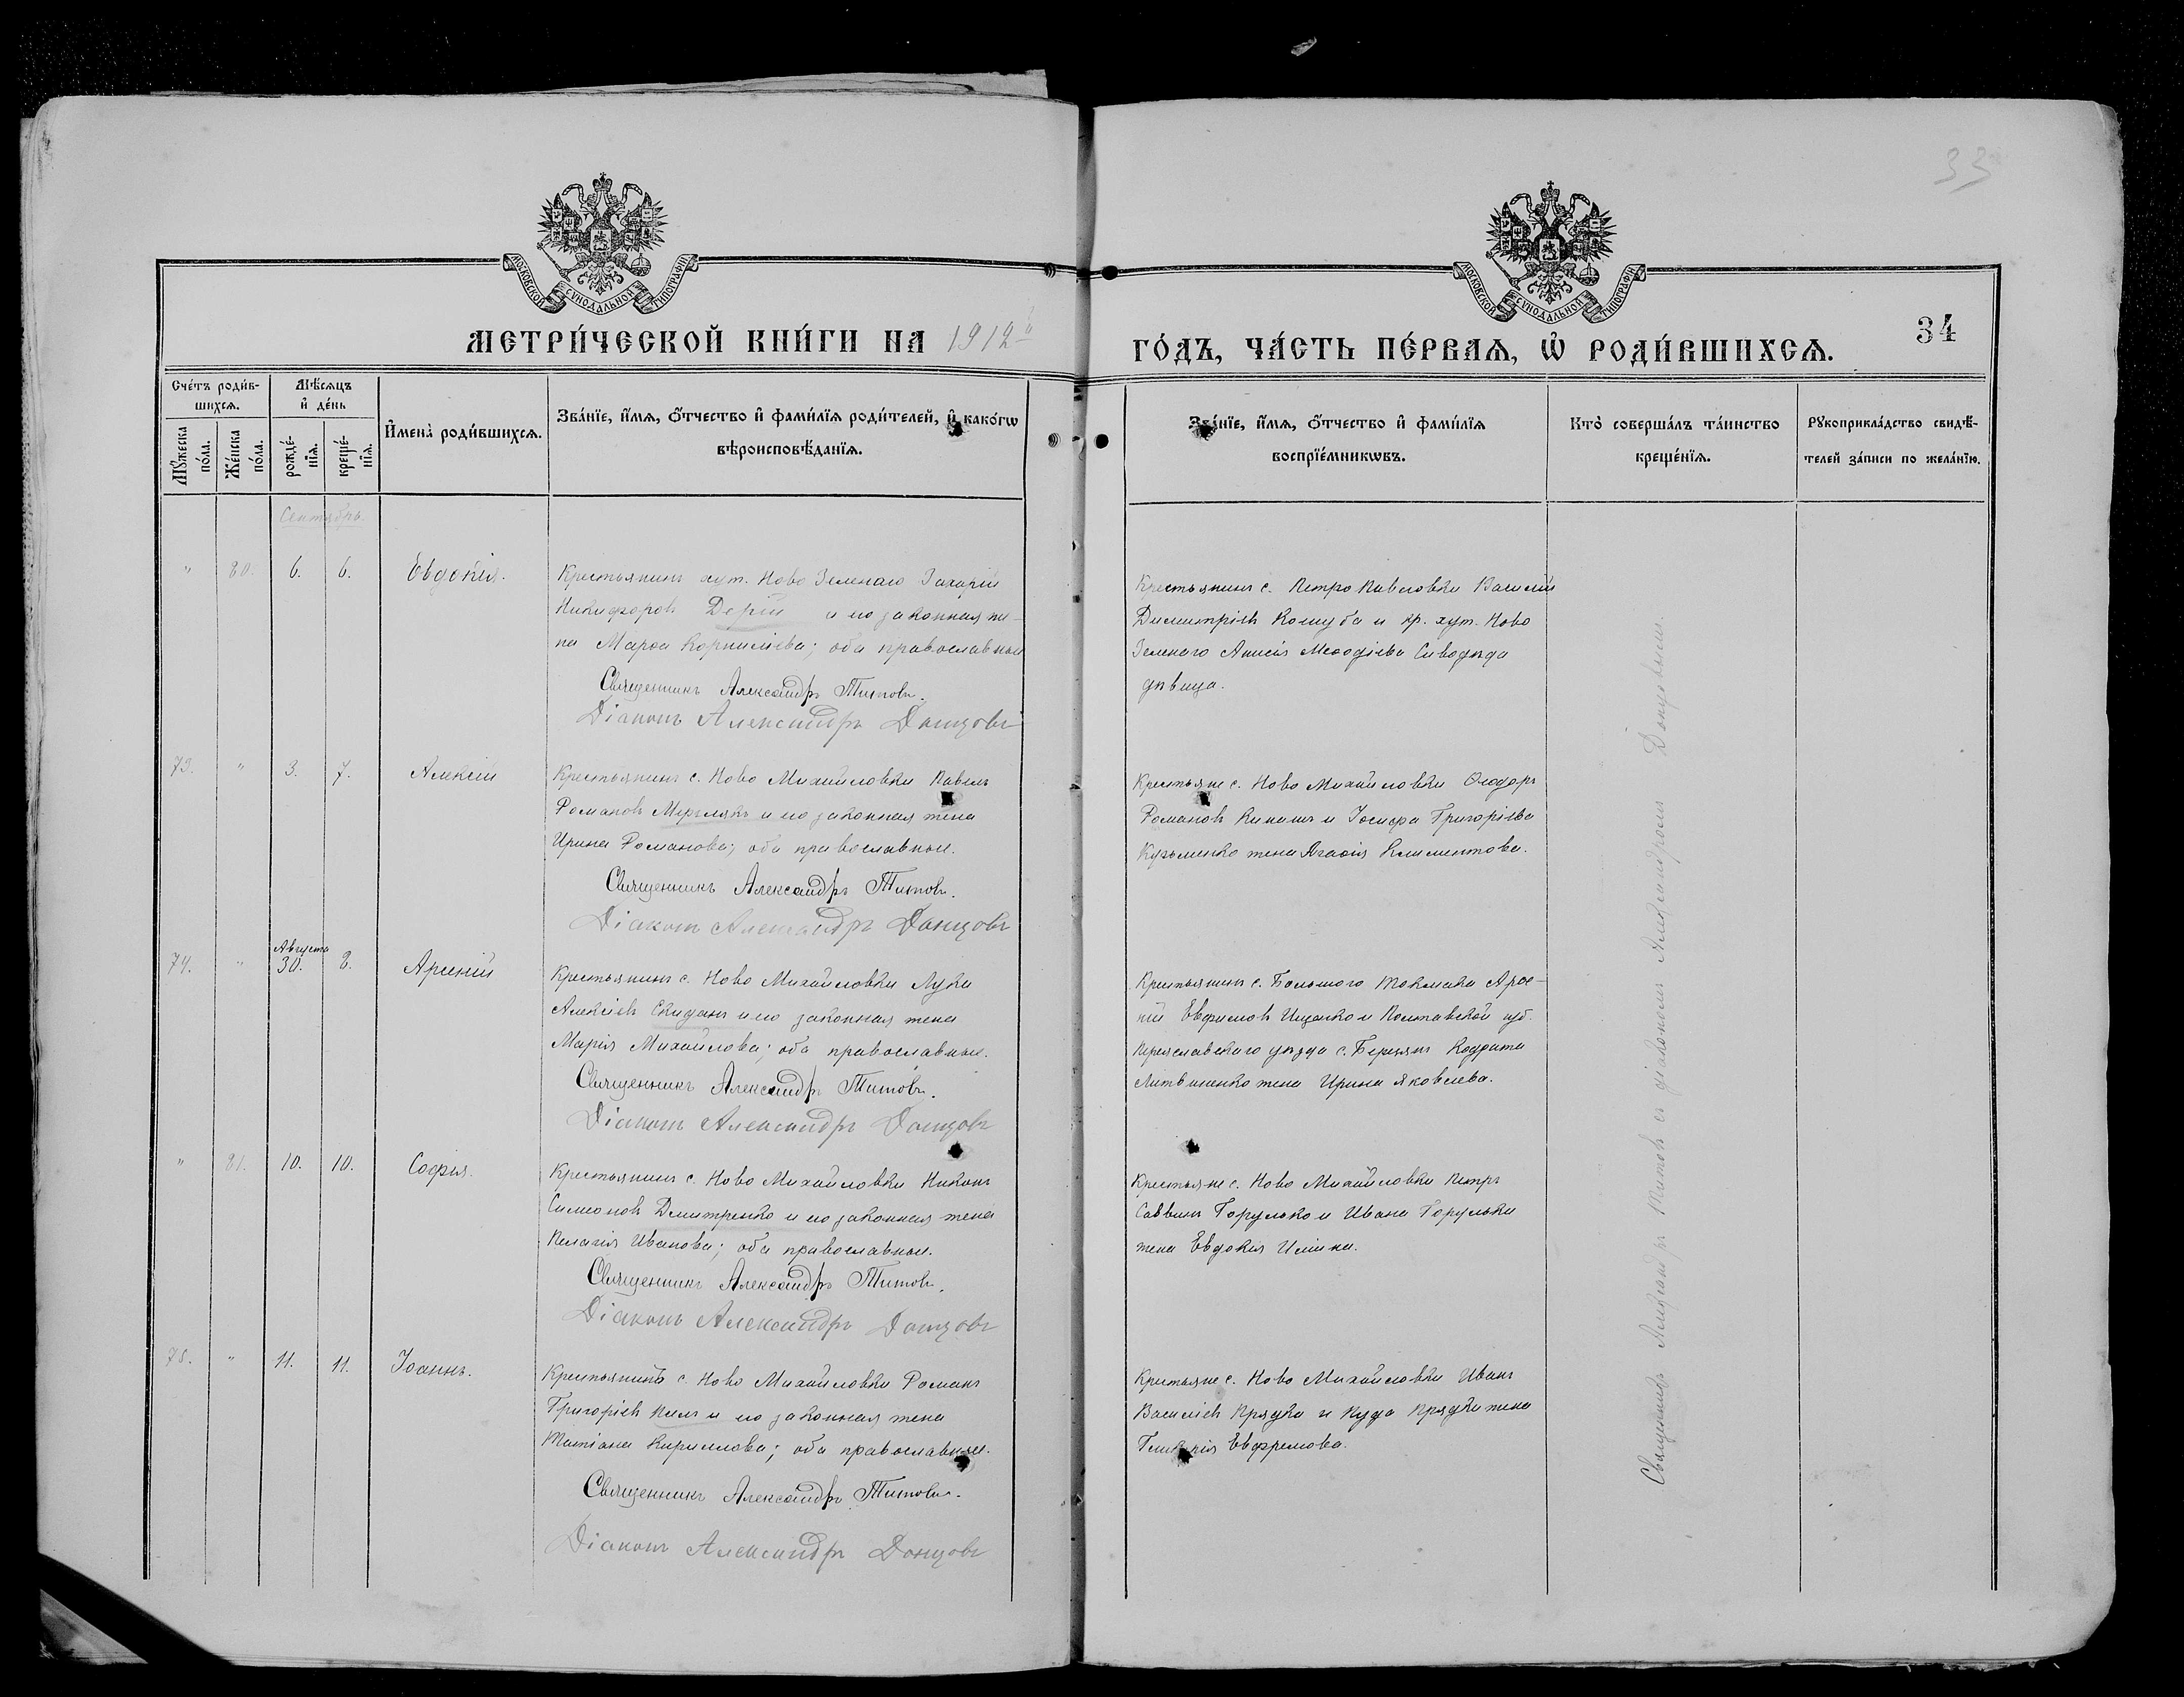 33
МОСКОВСКОЙ СѴНОДАЛЬНОЙ ТИПОГРАФІИ
МОСКОВСКОЙ СѴНОДАЛЬНОЙ ТИПОГРАФІИ
МЕТРИ́ЧЕСКОЙ КНИ́ГИ НА 1912 й
ГО́ДЪ, ЧА́СТЬ ПЕ́РВАѦ, Ѡ҆ РОДИ́ВШИХСѦ.
34
Сче́тъ роди́в-
шихсѧ.
Мꙋ́жеска
по́ла.
Же́нска
по́ла.
Мѣ́сѧцъ
и҆ де́нь
рожде́-
нїѧ.
креще́-
нїѧ.
И҆мена̀ роди́вшихсѧ.
Зва́нїе, и҆́мѧ, ѻ҆́тчество и҆ фами́лїѧ роди́телей, и҆ како́гѡ
вѣроисповѣ́данїѧ.
Зва́нїе, и҆́мѧ, ѻ҆́тчество и҆ фами́лїѧ
воспрїе́мникѡвъ.
Кто̀ соверша́лъ та́инство
креще́нїѧ.
Рꙋкоприкла́дство свидѣ́-
телей за́писи по жела́нїю.
Сентябрь.
" 80. 6. 6. Евдокія.
Крестьянинъ хут. Ново Зеленаго Захарій
Никифоровъ Дерій и его законная же-
на Марѳа Корнилiева; оба православные
Священникъ Александръ Титовъ.
Діаконъ Александръ Донцовъ
Крестьянинъ с. Петро Павловки Василій
Димитріевъ Кошуба и кр. хут. Ново
Зеленаго Анисія Меѳодіева Сиводѣда
дѣвица.
73. " 3. 7. Алексій
Крестьянинъ с. Ново Михайловки Павелъ
Романовъ и его законная жена
Ирина Романова; оба православные.
Священникъ Александръ Титовъ.
Діаконъ Александръ Донцовъ
Крестьяне с. Ново Михайловки Ѳеодоръ
Романовъ Кинашъ и Іосифа Григоріева
Кузьменко жена Агаѳія Климентова.
74. " Августа 30. 8. Арсеній
Крестьянинъ с. Ново Михайловки Лука
Алексіевъ Скиданъ и его законная жена
Марія Михайлова; оба православные.
Священникъ Александръ Титовъ.
Діаконъ Александръ Донцовъ
Крестьянинъ с. Большого Токмака Арсе-
ній Ищенко и Полтавской губ.
Переяславскаго уѣзда с. Кодрата
Литвиненко жена Ирина Яковлева.
" 81. 10. 10. Софія.
Крестьянинъ с. Ново Михайловки Никонъ
Симеоновъ Дмитренко и его законная жена
Пелагія Иванова; оба православные.
Священникъ Александръ Титовъ.
Діаконъ Александръ Донцовъ
Крестьяне с. Ново Михайловки Петръ
Саввинъ Горулько и Ивана Горульки
жена Евдокія Ильина.
75. " 11. 11. Іоаннъ.
Крестьянинъ с. Ново Михайловки Романъ
Григоріевъ и его законная жена
Татіана Кириллова; оба православные.
Священникъ Александръ Титовъ.
Діаконъ Александръ Донцовъ
Крестьяне с. Ново Михайловки Иванъ
Василіевъ Прядка и Прядки жена
Гликерія Евфремова.
Священникъ Александръ Титовъ съ діакономъ Александромъ Донцовымъ.